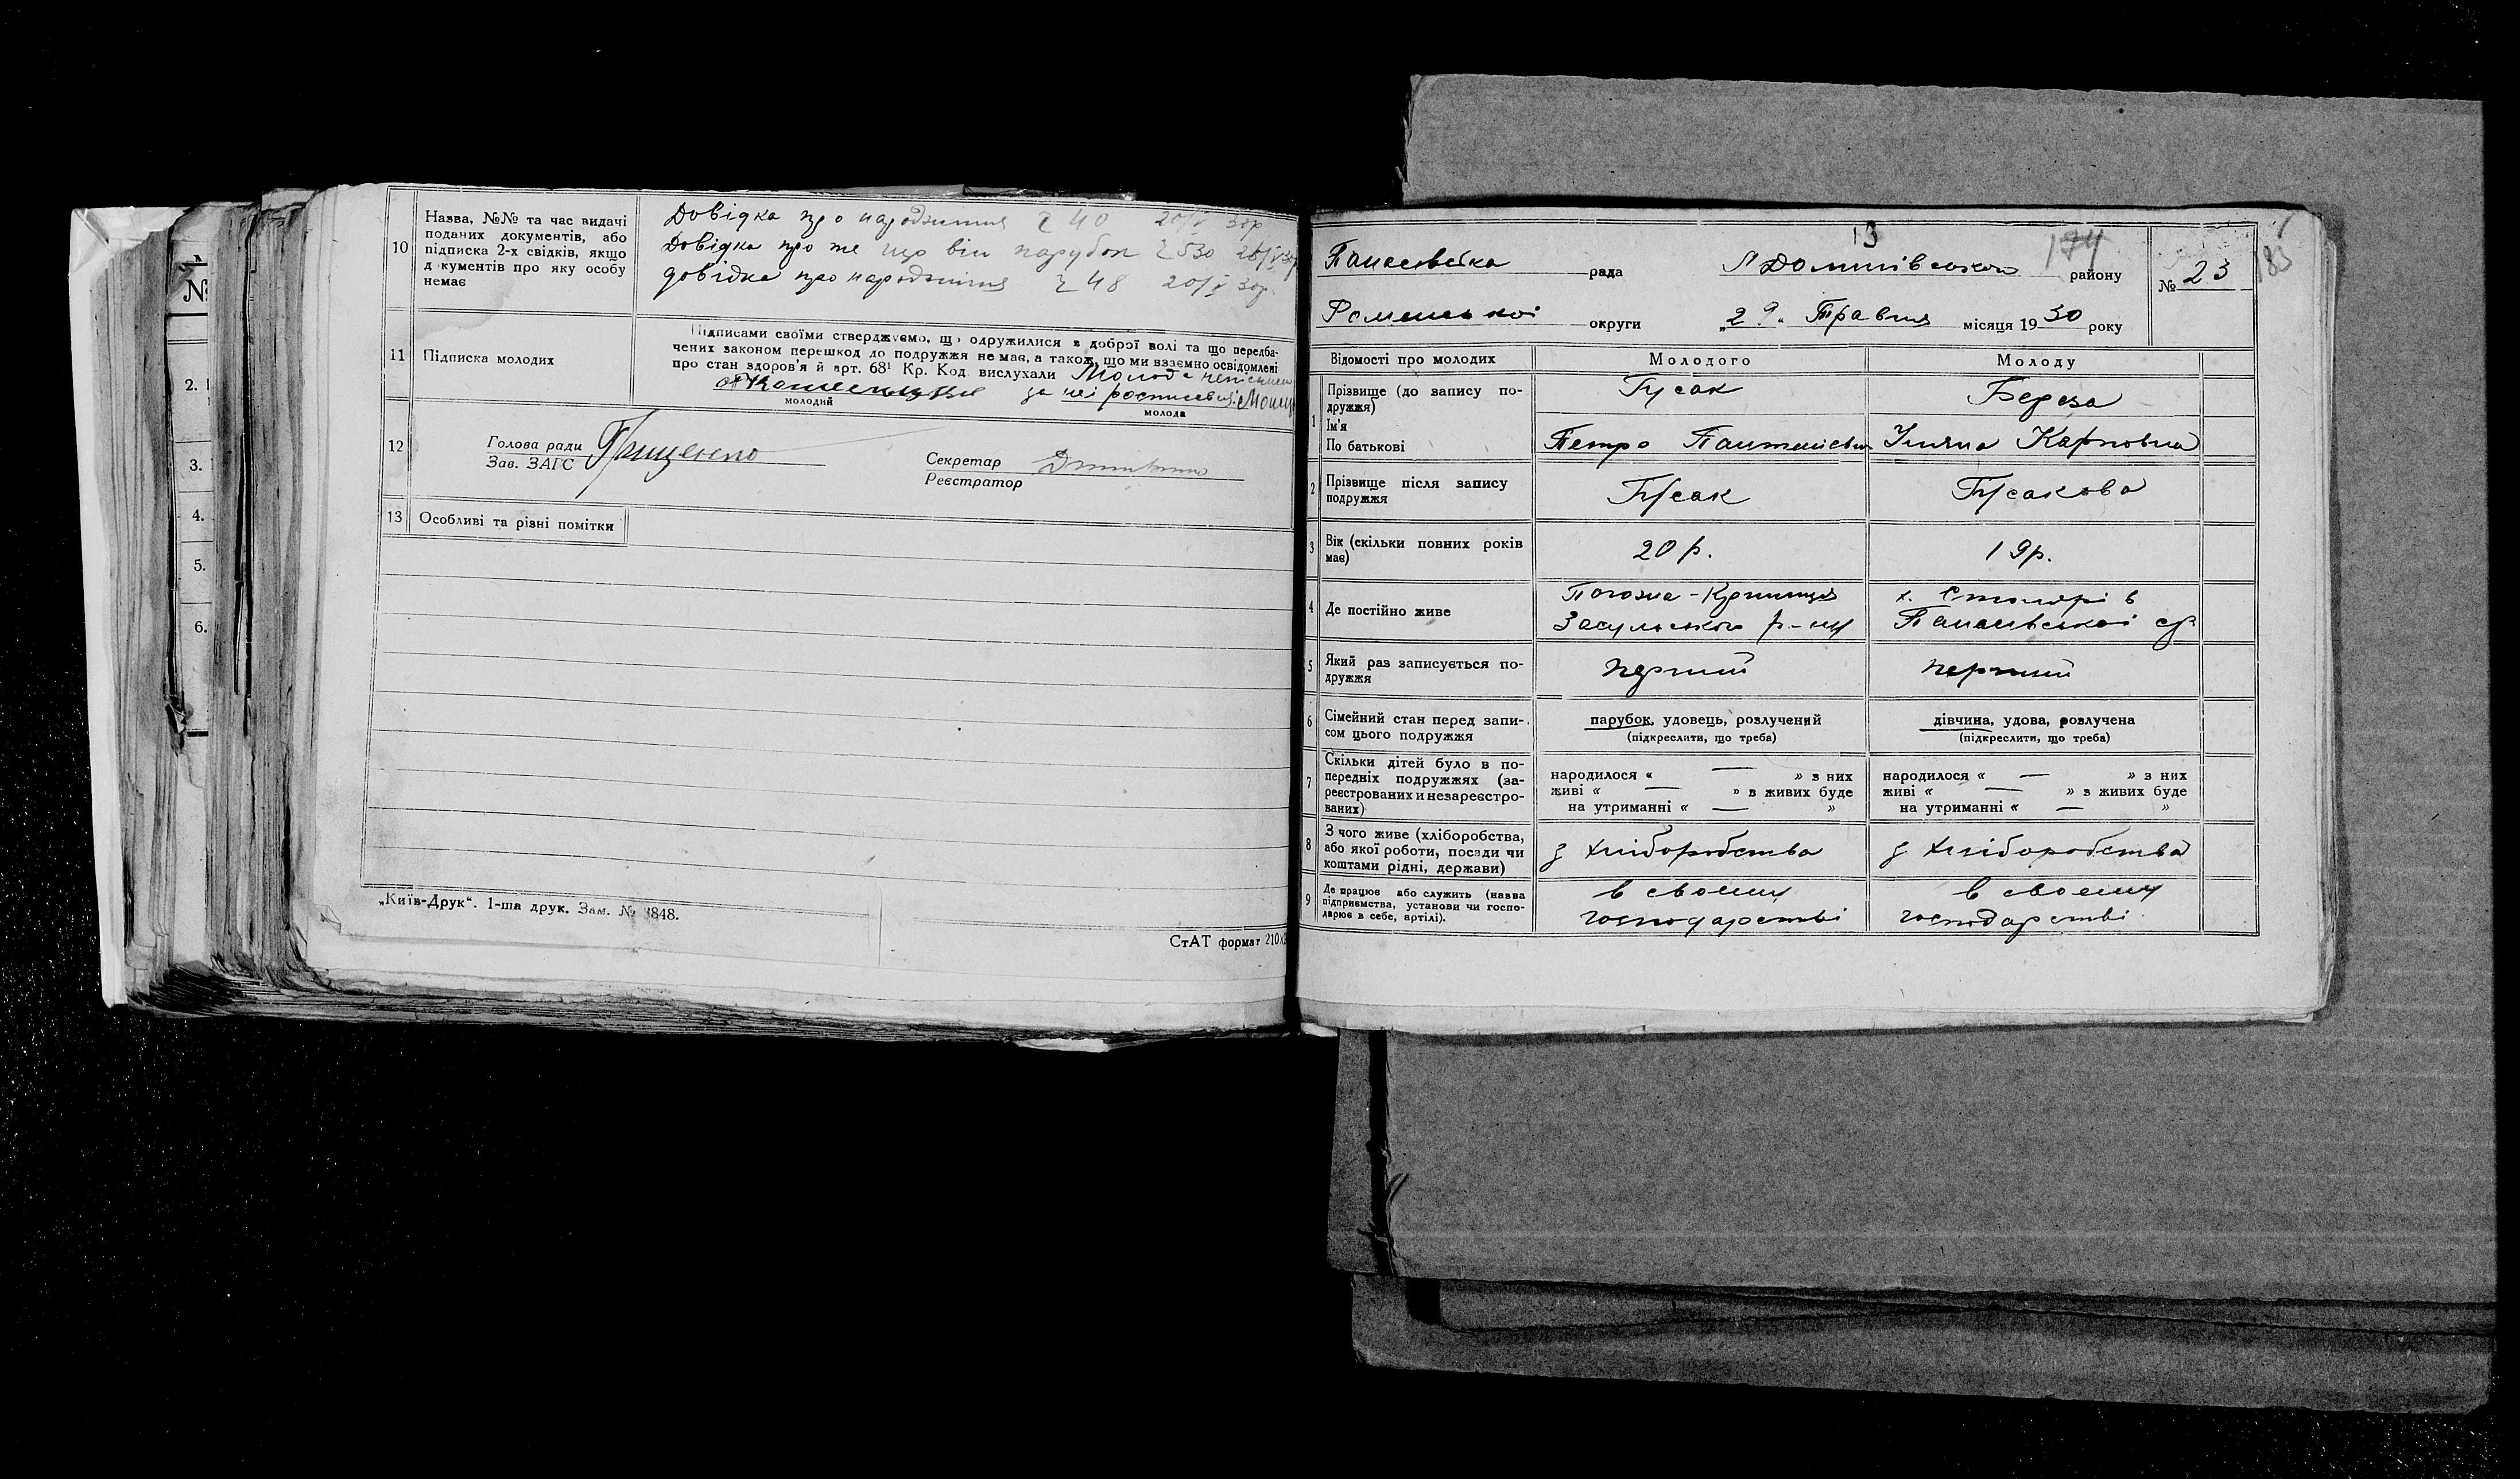 10
Назва, №№ та час видачі
поданих документів, або
підписка 2-х свідків, якщо
д кументів про яку особу
немає
Довідка про народження № 40 20/V 30р
Довідка про те що він парубок № 530 26/V 30р
довідка про народження № 48 20/V 30р.
11
Підписка молодих
Підписами своїми стверджуємо, що одружилися з доброї волі та що передба-
чених законом перешкод до подружжя немає, а також, що ми взаємно освідомлені
про стан здоров'я й арт. 68¹ Кр. Код вислухали Молода неписьмен
за неї росписався
молодий
молода
12
Голова ради Грищенко
Зав. ЗАГС
Секретар
Реєстратор
13
Особливі та різні помітки
„Київ-Друк“. 1-ша друк. Зам. № 3848.
СтАТ формат 210х
№
2.
3.
4.
5.
6.
13
174
183
Панасівська рада Домипівського району
№ 23
Роменської округи „29“ Травня місяця 1930 року
Відомості про молодих
Молодого
Молоду
1
Прізвище (до запису по-
дружжя)
Ім'я
По батькові
Гусак
Петро Пантелієвич
Береза
Уляна Карповна
2
Прізвище після запису
подружжя
Гусак
Гусакова
3
Вік (скільки повних років
має)
20 р.
19р.
4
Де постійно живе
Погожа-Криниця
Засульського р-ну
х. Столярів
Панасівської с/р
5
Який раз записується по-
дружжя
перший
перший
6
Сімейний стан перед запи-
сом цього подружжя
парубок, удовець, розлучений
(підкреслити, що треба)
дівчина, удова, розлучена
(підкреслити, що треба)
7
Скільки дітей було в по-
передніх подружжях (за-
реєстрованих и незареєстро-
ваних)
народилося « — » з них
живі « — » в живих буде
на утриманні « — »
народилося « — » з них
живі « — » з живих буде
на утриманні « — »
8
З чого живе (хліборобства,
або якої роботи, посади чи
коштами рідні, держави)
з хліборобства
з хліборобства
9
Де працює або служить (назва
підприємства, установи чи госпо-
дарює в себе, артілі).
в своєму
господарстві
в своєму
господарстві